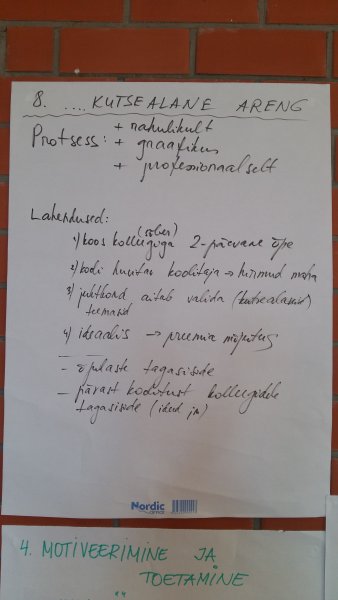 8. .... KUTSEALANE ARENG
Protsess: + rahulikult
+ graafikus
+ professionaalselt
Lahendused:
1) koos kolleegiga (sõber) 2-päevane õpe
2) kooli kuutav koolitaja → hirmud maha
3) juhtkond aitab valida (kutsealaseid)
teemasid
4) ideaalis → preemia mõjutus
- õpilaste tagasiside
- pärast koolitust kolleegidele
tagasiside (ideed jm)
Nordic
4. MOTIVEERIMINE JA
TOETAMINE